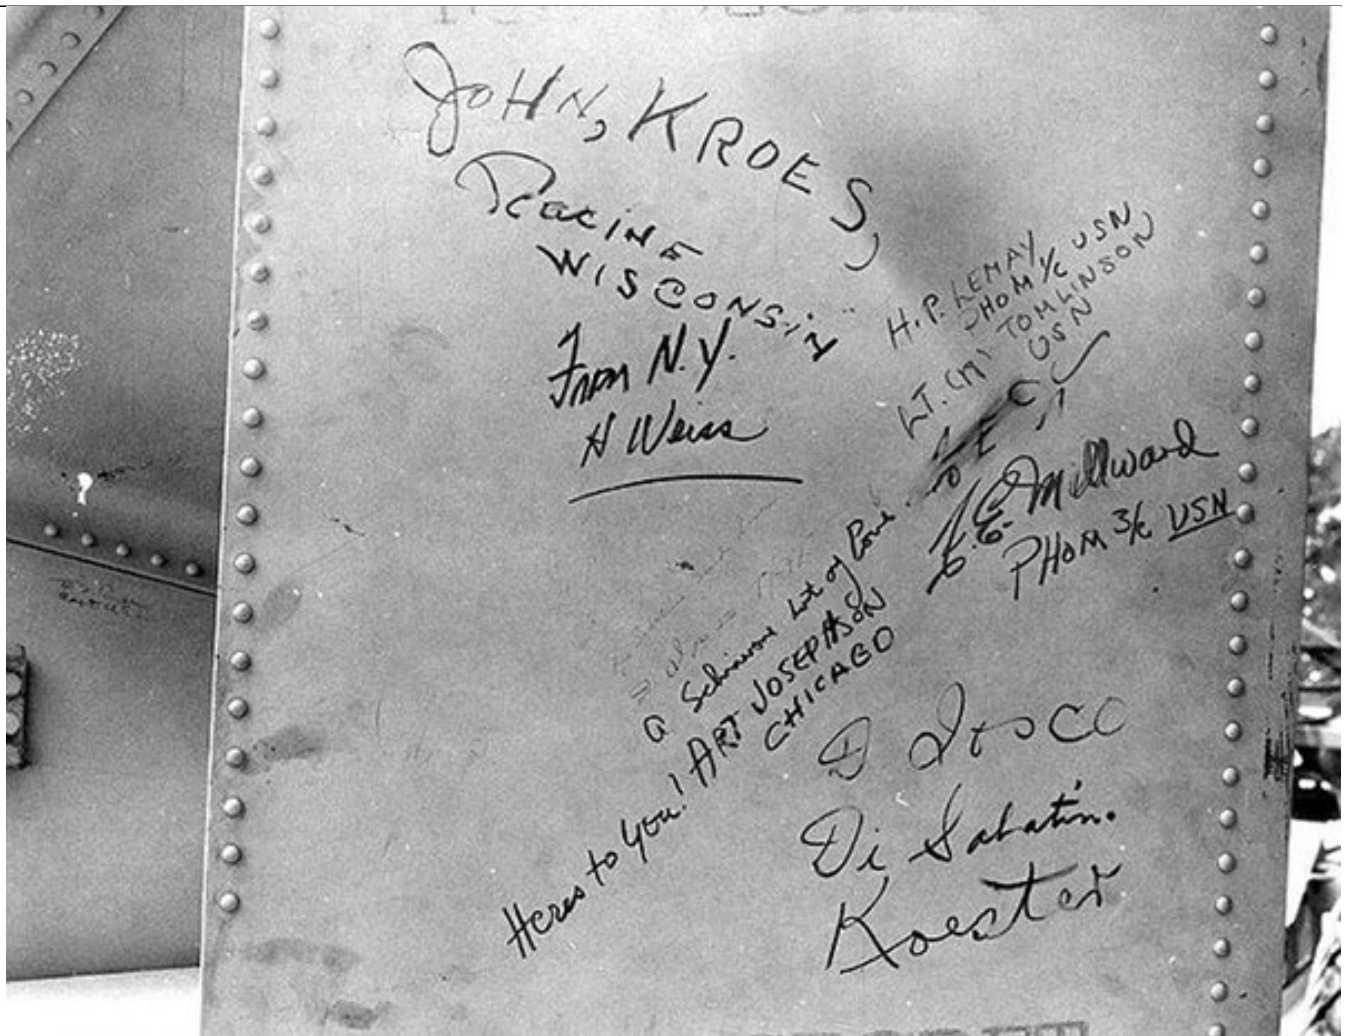 JOHN, KROES,
Racine
WISCONSIN
From N.Y.
H Weiss
H.P. LEMAY,
PHOM 1/c USN,
LT. (M) TOMLINSON
USN
J.E. Millward
PHOM 3/c USN
a lot of
Heres to you! ART JOSEPHSON
CHICAGO
D
Di Sabatin.
Koester